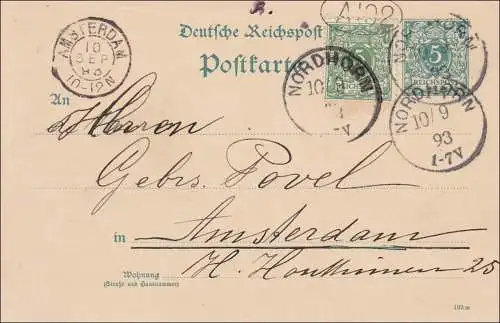 A102
Deutsche Reichspost
Postkarte
AMSTERDAM
10
SEP
93
10-12N
5
NORDHORN
10/9
93
1-7V
NORDHORN
5
REICHSPOST
NORDHORN
10/9
93
1-7V
An
Herren
Gebrs. Povel
in Amsterdam
H. 25
Wohnung
(Straße und Hausnummer)